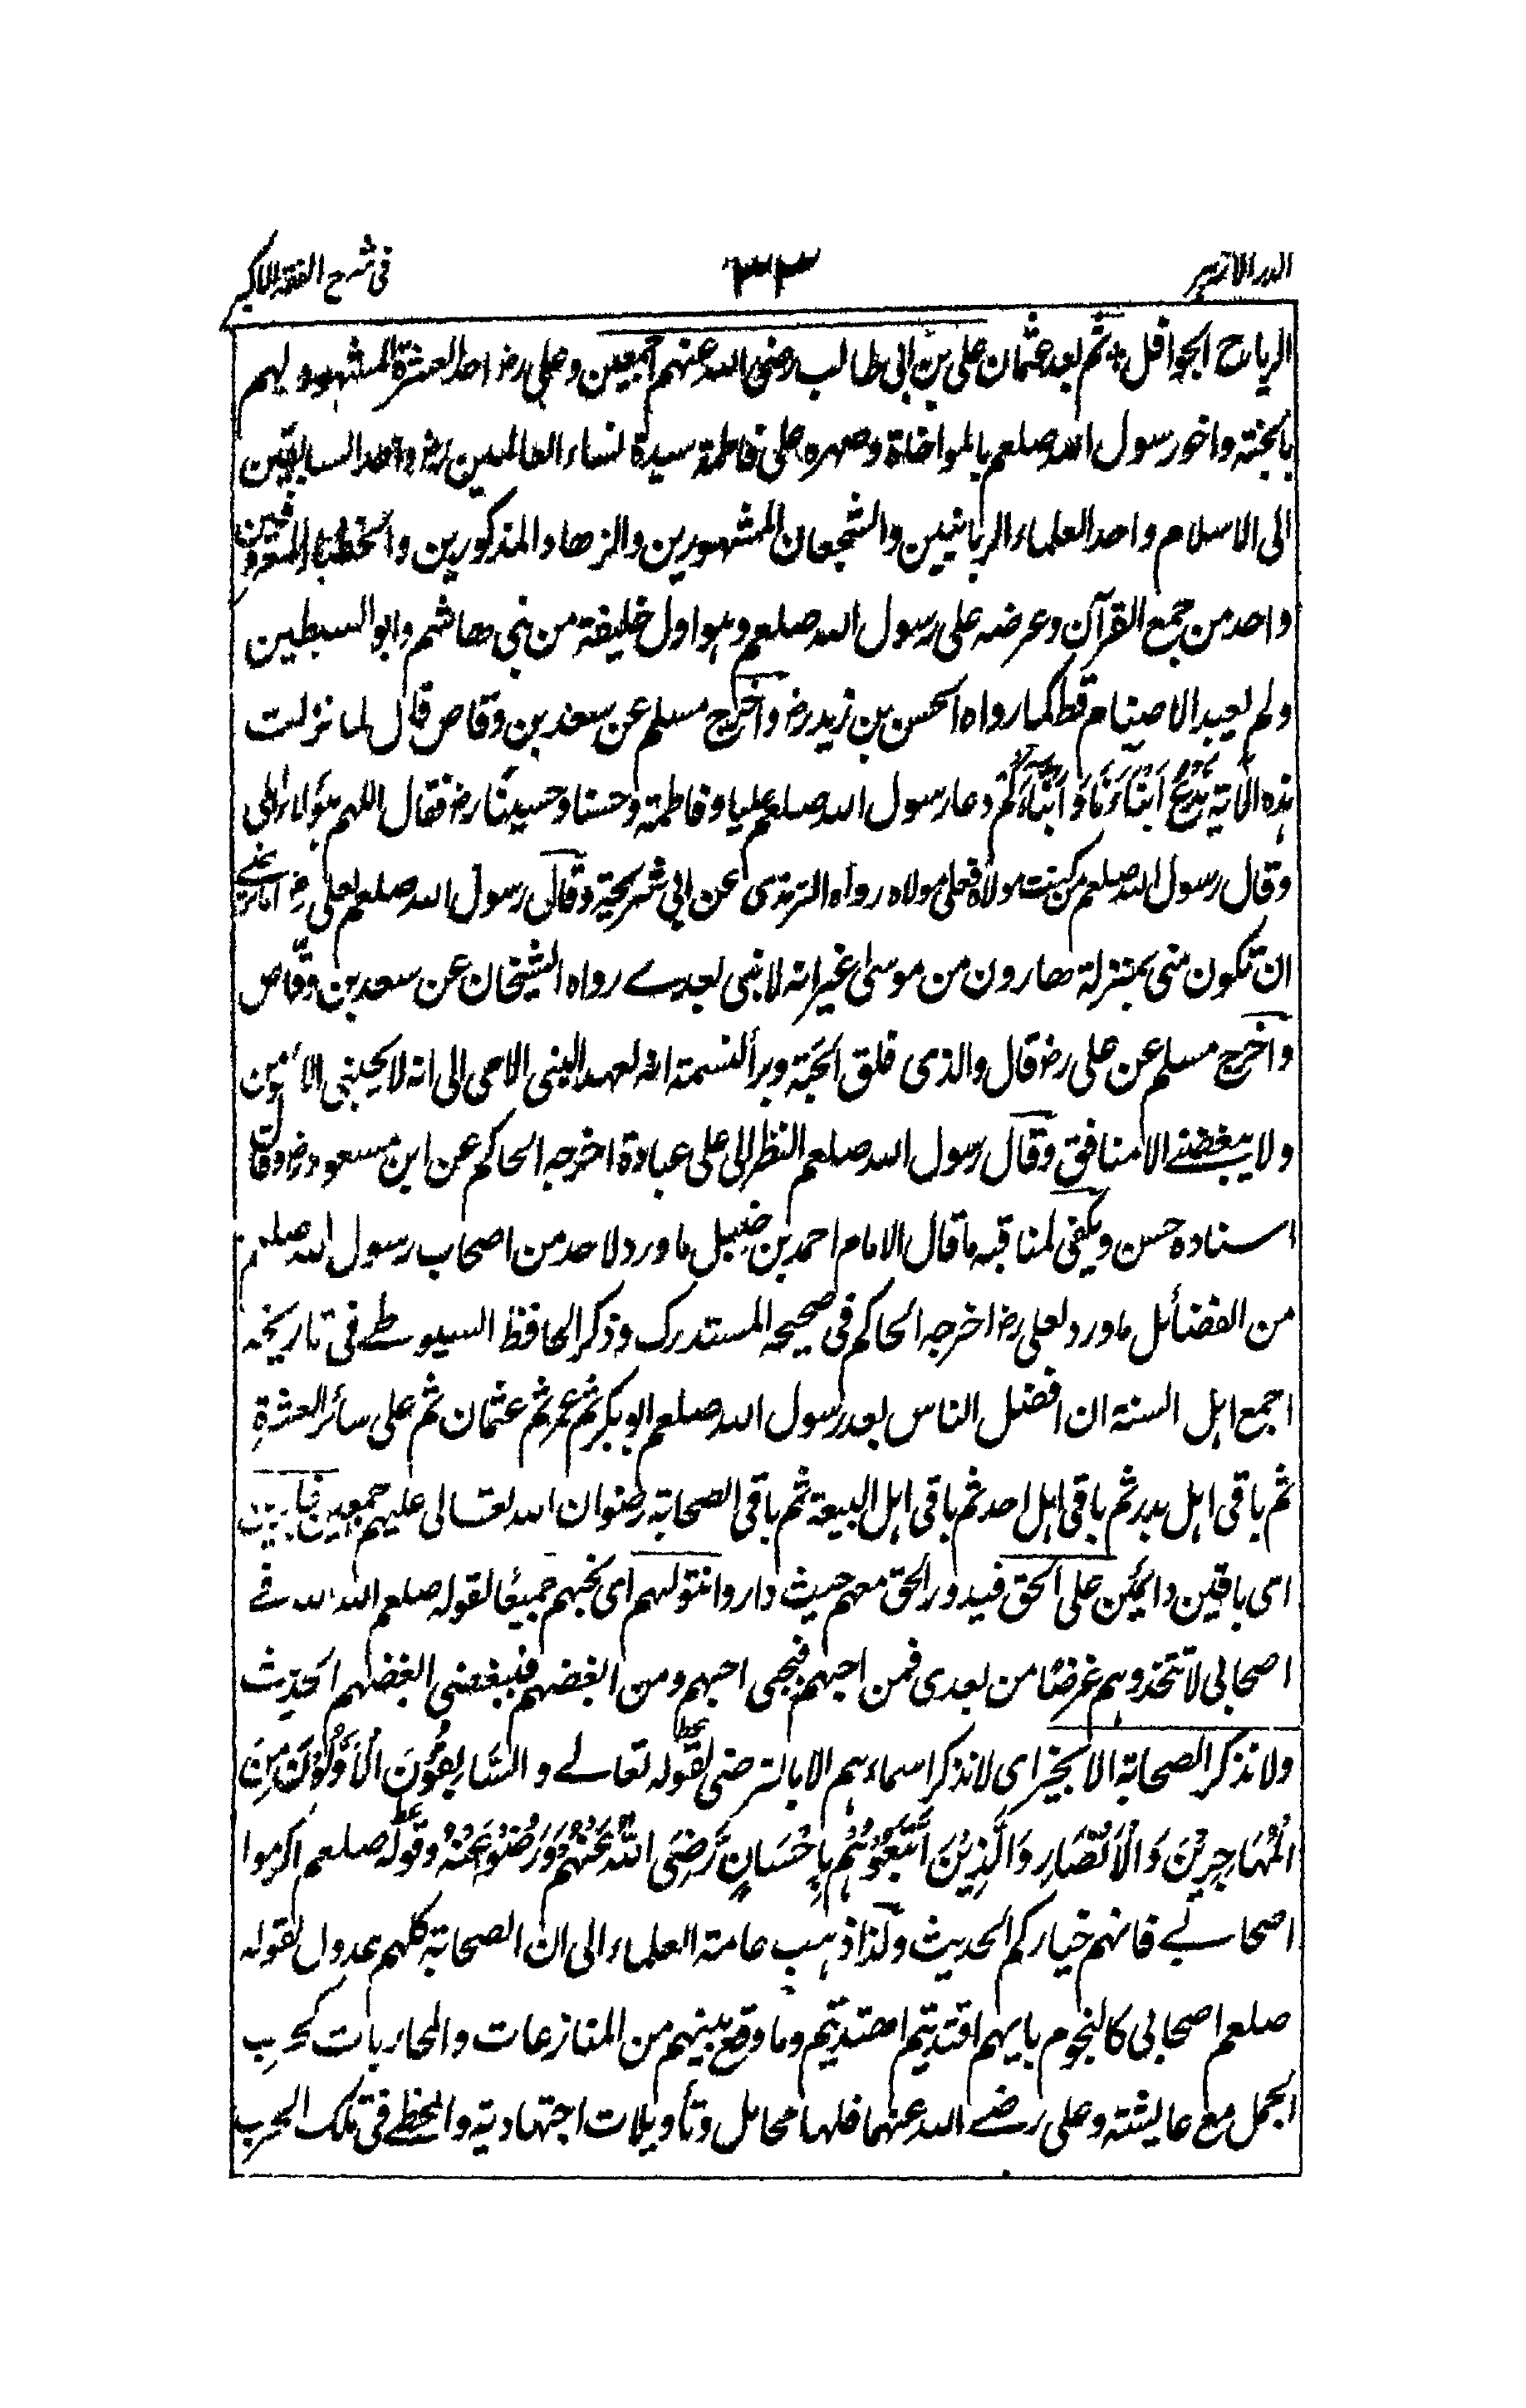 الدر الازهر ٣٣ فی شرح الفقه الاكبر
الرياح الجوافل ثم بعد عثمان علی بن ابی طالب رضی الله عنهم اجمعين و علی رض احد العشرة المشهود لهم
بالجنة و اخو رسول الله صلعم بالمواخاة و صهره علی فاطمة سيدة نساء العالمين رض و احد السابقين
الی الاسلام و احد العلماء الربانيين و الشجعان المشهورين و الزهاد المذكورين و الخطباء المعروفين
و احد من جمع القرآن و عرضه علی رسول الله صلعم و هو اول خليفة من بنی هاشم و ابو السبطين
و لم يعبد الاصنام قط كما رواه الحسن بن زيد رض و اخرج مسلم عن سعد بن وقاص قال لما نزلت
هذه الآية نَدْعُ اَبْنَاءَنَا وَ اَبْنَاءَكُمْ دعا رسول الله صلعم عليا و فاطمة و حسنا و حسينًا رض فقال اللهم هؤلاء اهلی
و قال رسول الله صلعم من كنت مولاه فعلی مولاه رواه الترمذی عن ابی شريحة و قال رسول الله صلعم لعلی رض اما ترضی
ان تكون منی بمنزلة هارون من موسیٰ غير انه لا نبی بعدے رواه الشيخان عن سعد بن وقّاص
و اخرج مسلم عن علی رض قال و الذی فلق الحَبّة و برأ النسمة انه لعهد النبی الامی الی انه لا يحبنی الا مؤمن
و لا يبغضنے الا منافق و قال رسول الله صلعم النظر الی علی عبادة اخرجه الحاكم عن ابن مسعود رض و قال
اسناده حسن و يكفی لمناقبه ما قال الامام احمد بن حنبل ما ورد لاحد من اصحاب رسول الله صلعم
من الفضائل ما ورد لعلی رض اخرجه الحاكم فی صحيحه المستدرك و ذكر الحافظ السيوطے فی تاريخه
اجمع اهل السنة ان افضل الناس بعد رسول الله صلعم ابو بكر ثم عمر ثم عثمان ثم علی سائر العشرةِ
ثم باقی اهل بدر ثم باقی اهل احد ثم باقی اهل البيعة ثم باقی الصحابة رضوان الله تعالی عليهم اجمعين غابرين
ای باقين دائمين علی الحق فيدور الحق معهم حيث داروا نتولهم ای نحبهم جميعًا لقوله صلعم الله الله فے
اصحابی لا تتخذوهم غرضًا من بعدی فمن احبهم فبحبی احبهم و من ابغضهم فببغضی ابغضهم الحديث
و لا نذكر الصحابة الا بخير ای لا نذكر اسماءهم الا بالترضی لقوله تعالے و السَّابِقُوْنَ الْاَوَّلُوْنَ مِنَ
الْمُهَاجِرِيْنَ وَ الْاَنْصَارِ وَ الَّذِيْنَ اتَّبَعُوْهُمْ بِاِحْسَانٍ رَّضِیَ اللّٰهُ عَنْهُمْ وَ رَضُوْا عَنْهُ و قوله صلعم اكرموا
اصحابے فانهم خياركم الحديث و لذا ذهب عامة العلماء الی ان الصحابة كلهم عدول لقوله
صلعم اصحابی كالنجوم بايهم اقتديتم اهتديتم و ما وقع بينهم من المنازعات و المحاربات كحرب
الجمل مع عايشة و علی رضے الله عنهما فلها محامل و تأويلات اجتهادية و المخطے فی تلك الحرب